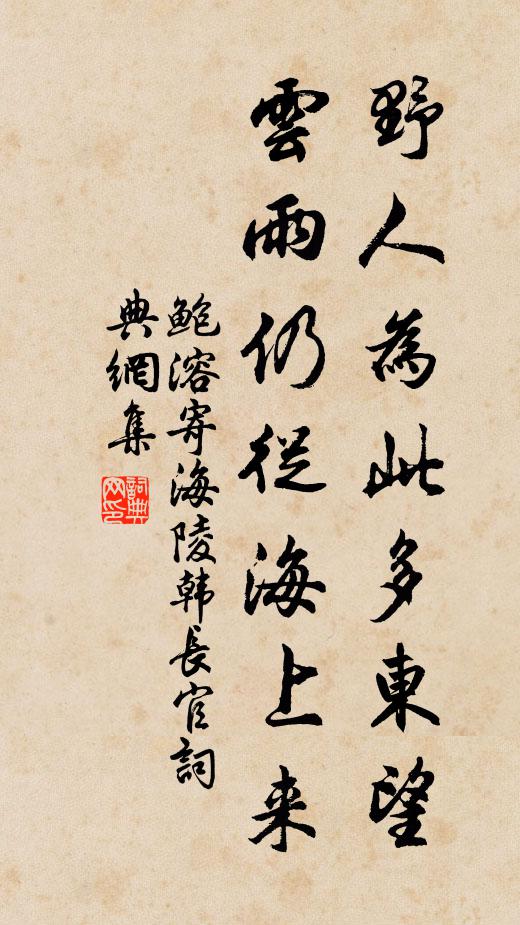 野人為此多東望
雲雨仍從海上来
鮑溶寄海陵韩長官詞
典網集
詞典網印